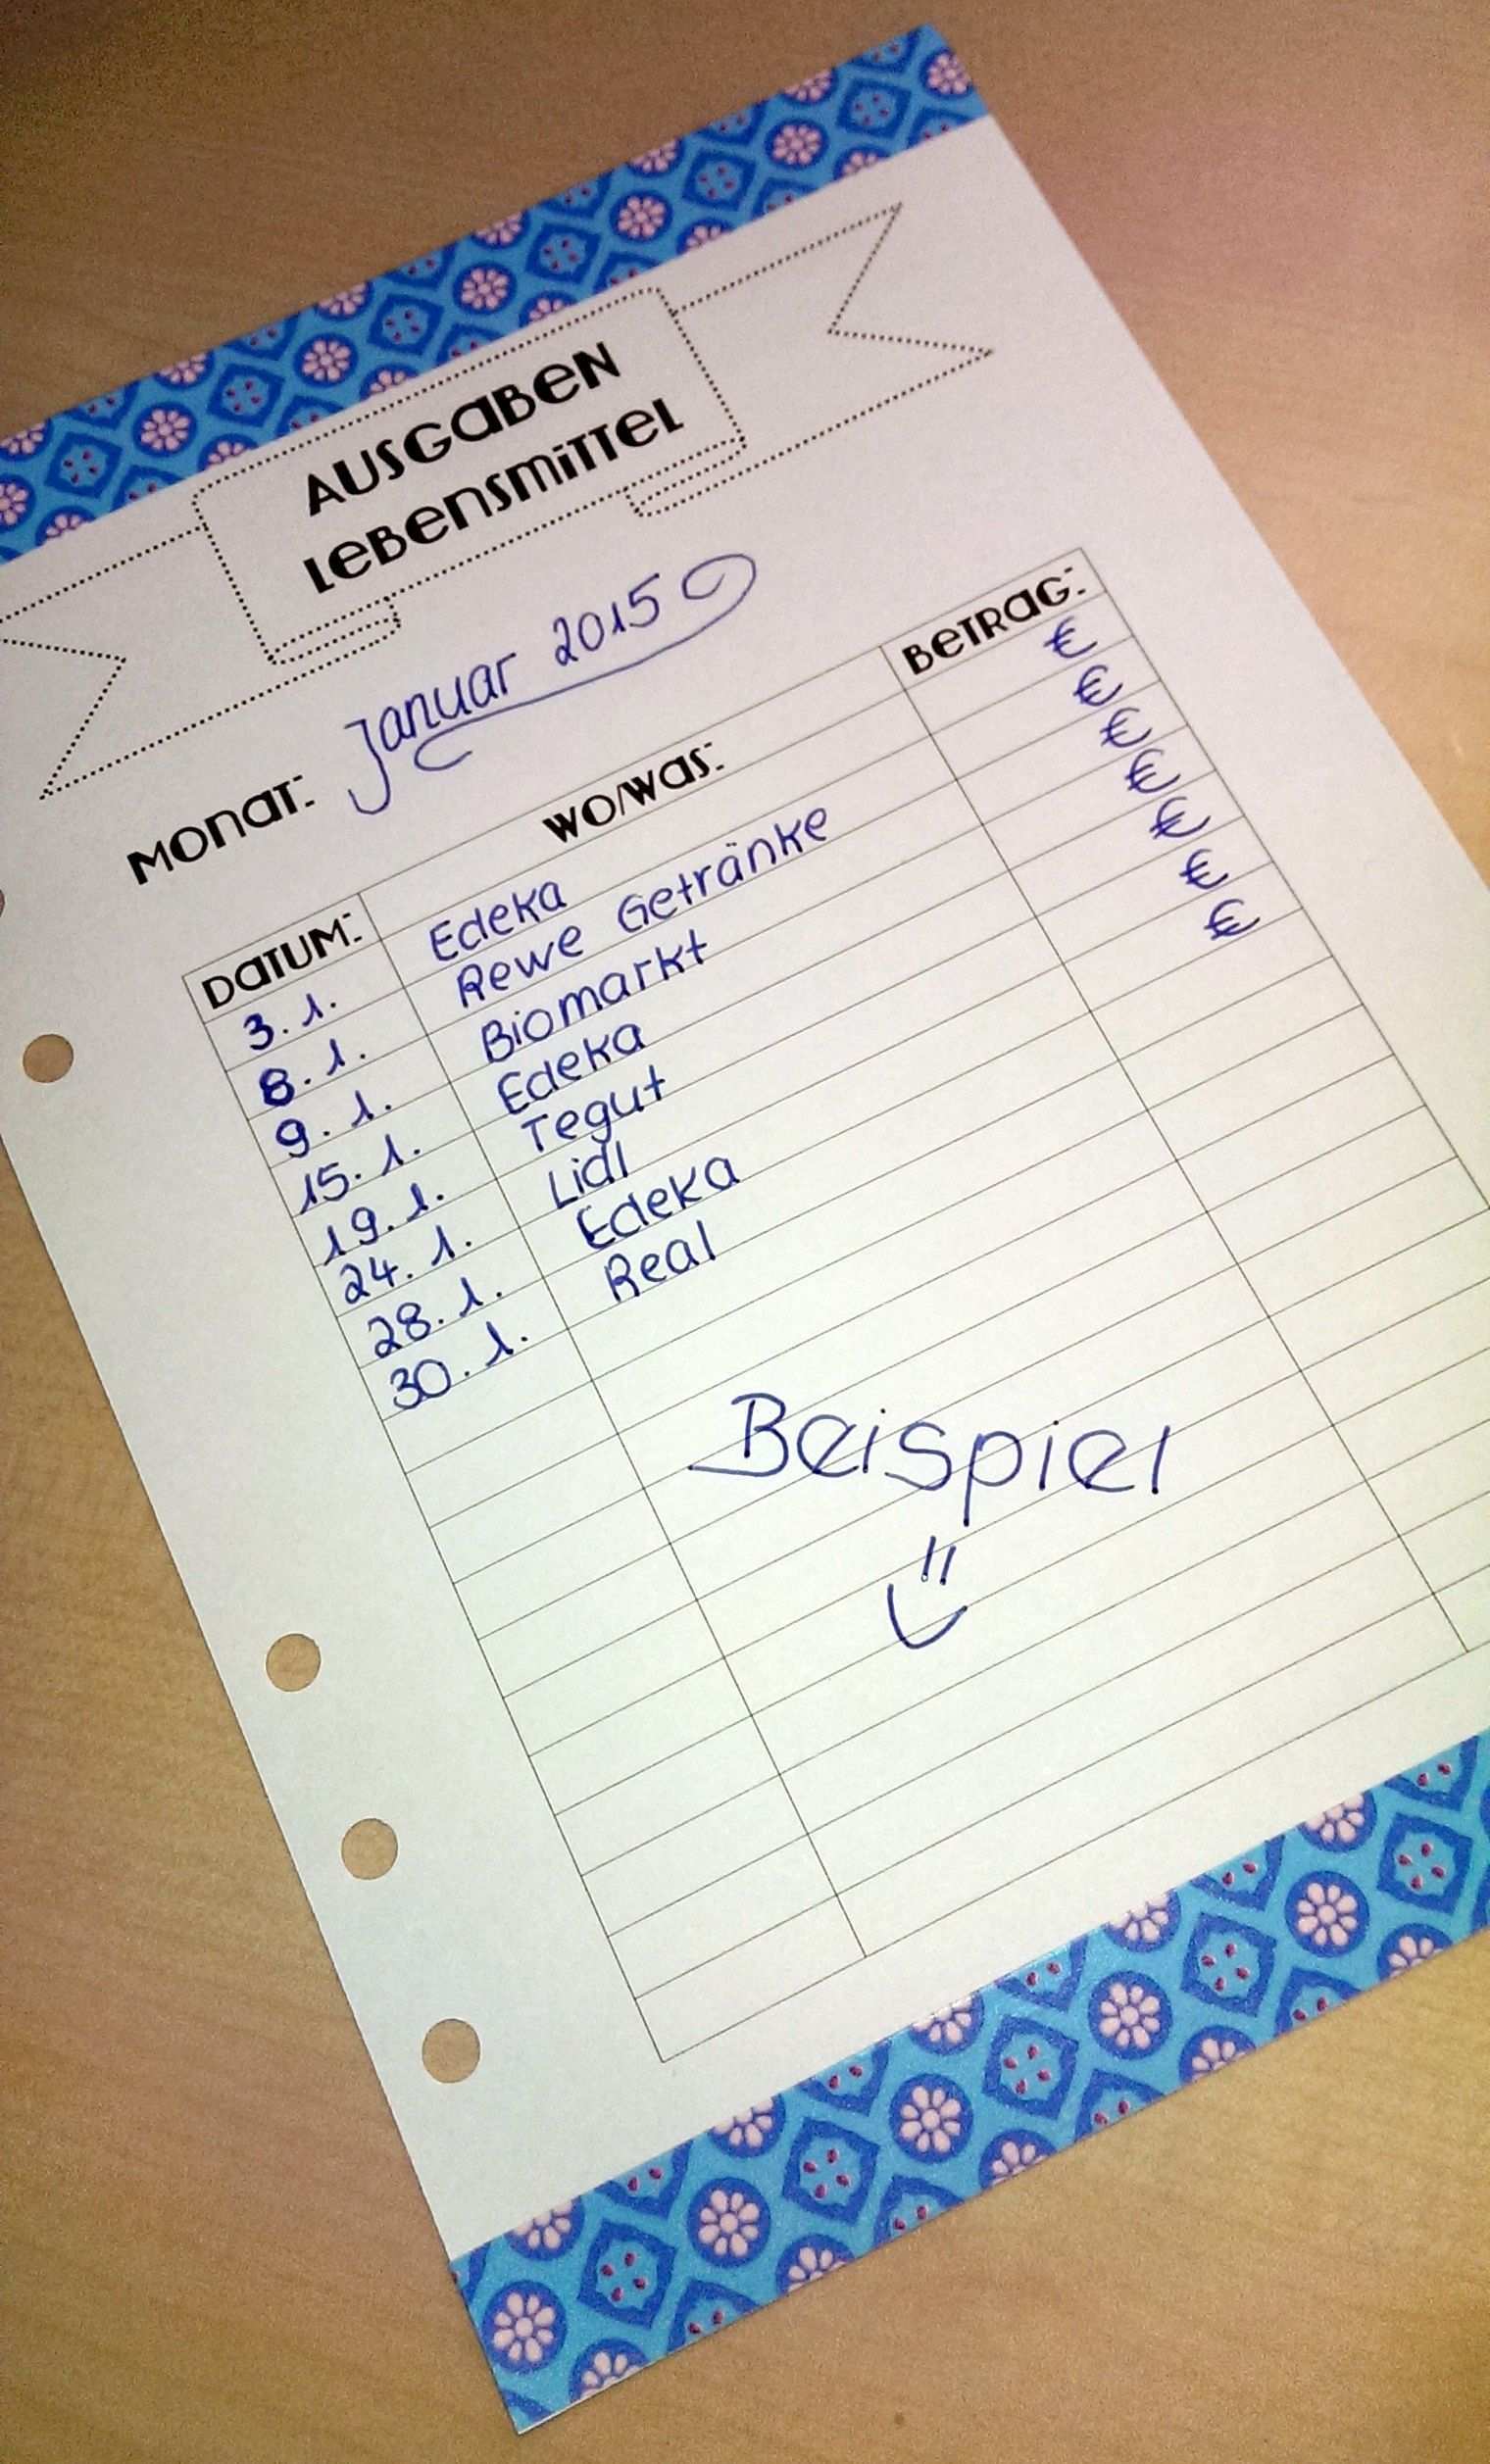 AUSGABEN
LEBENSMITTEL
MONAT: Januar 2015
DATUM: WO/WAS: BETRAG:
3. 1. Edeka €
8. 1. Rewe Getränke €
9. 1. Biomarkt €
15. 1. Edeka €
19. 1. Tegut €
24. 1. Lidl €
28. 1. Edeka €
30. 1. Real
Beispiel